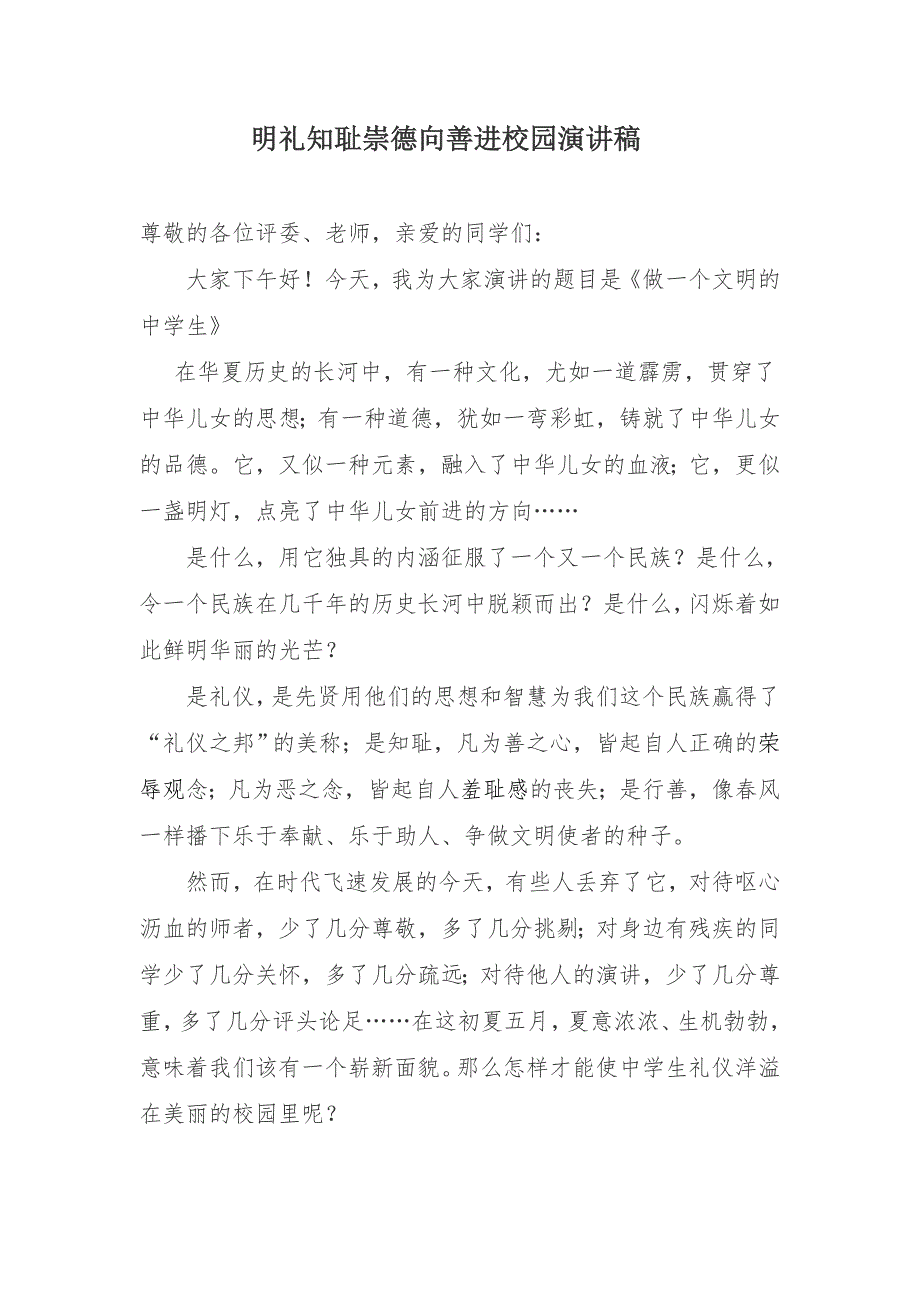 明礼知耻崇德向善进校园演讲稿
尊敬的各位评委、老师，亲爱的同学们：
大家下午好！今天，我为大家演讲的题目是《做一个文明的
中学生》
在华夏历史的长河中，有一种文化，尤如一道霹雳，贯穿了
中华儿女的思想；有一种道德，犹如一弯彩虹，铸就了中华儿女
的品德。它，又似一种元素，融入了中华儿女的血液；它，更似
一盏明灯，点亮了中华儿女前进的方向……
是什么，用它独具的内涵征服了一个又一个民族？是什么，
令一个民族在几千年的历史长河中脱颖而出？是什么，闪烁着如
此鲜明华丽的光芒？
是礼仪，是先贤用他们的思想和智慧为我们这个民族赢得了
“礼仪之邦”的美称；是知耻，凡为善之心，皆起自人正确的荣
辱观念；凡为恶之念，皆起自人羞耻感的丧失；是行善，像春风
一样播下乐于奉献、乐于助人、争做文明使者的种子。
然而，在时代飞速发展的今天，有些人丢弃了它，对待呕心
沥血的师者，少了几分尊敬，多了几分挑剔；对身边有残疾的同
学少了几分关怀，多了几分疏远；对待他人的演讲，少了几分尊
重，多了几分评头论足……在这初夏五月，夏意浓浓、生机勃勃，
意味着我们该有一个崭新面貌。那么怎样才能使中学生礼仪洋溢
在美丽的校园里呢？